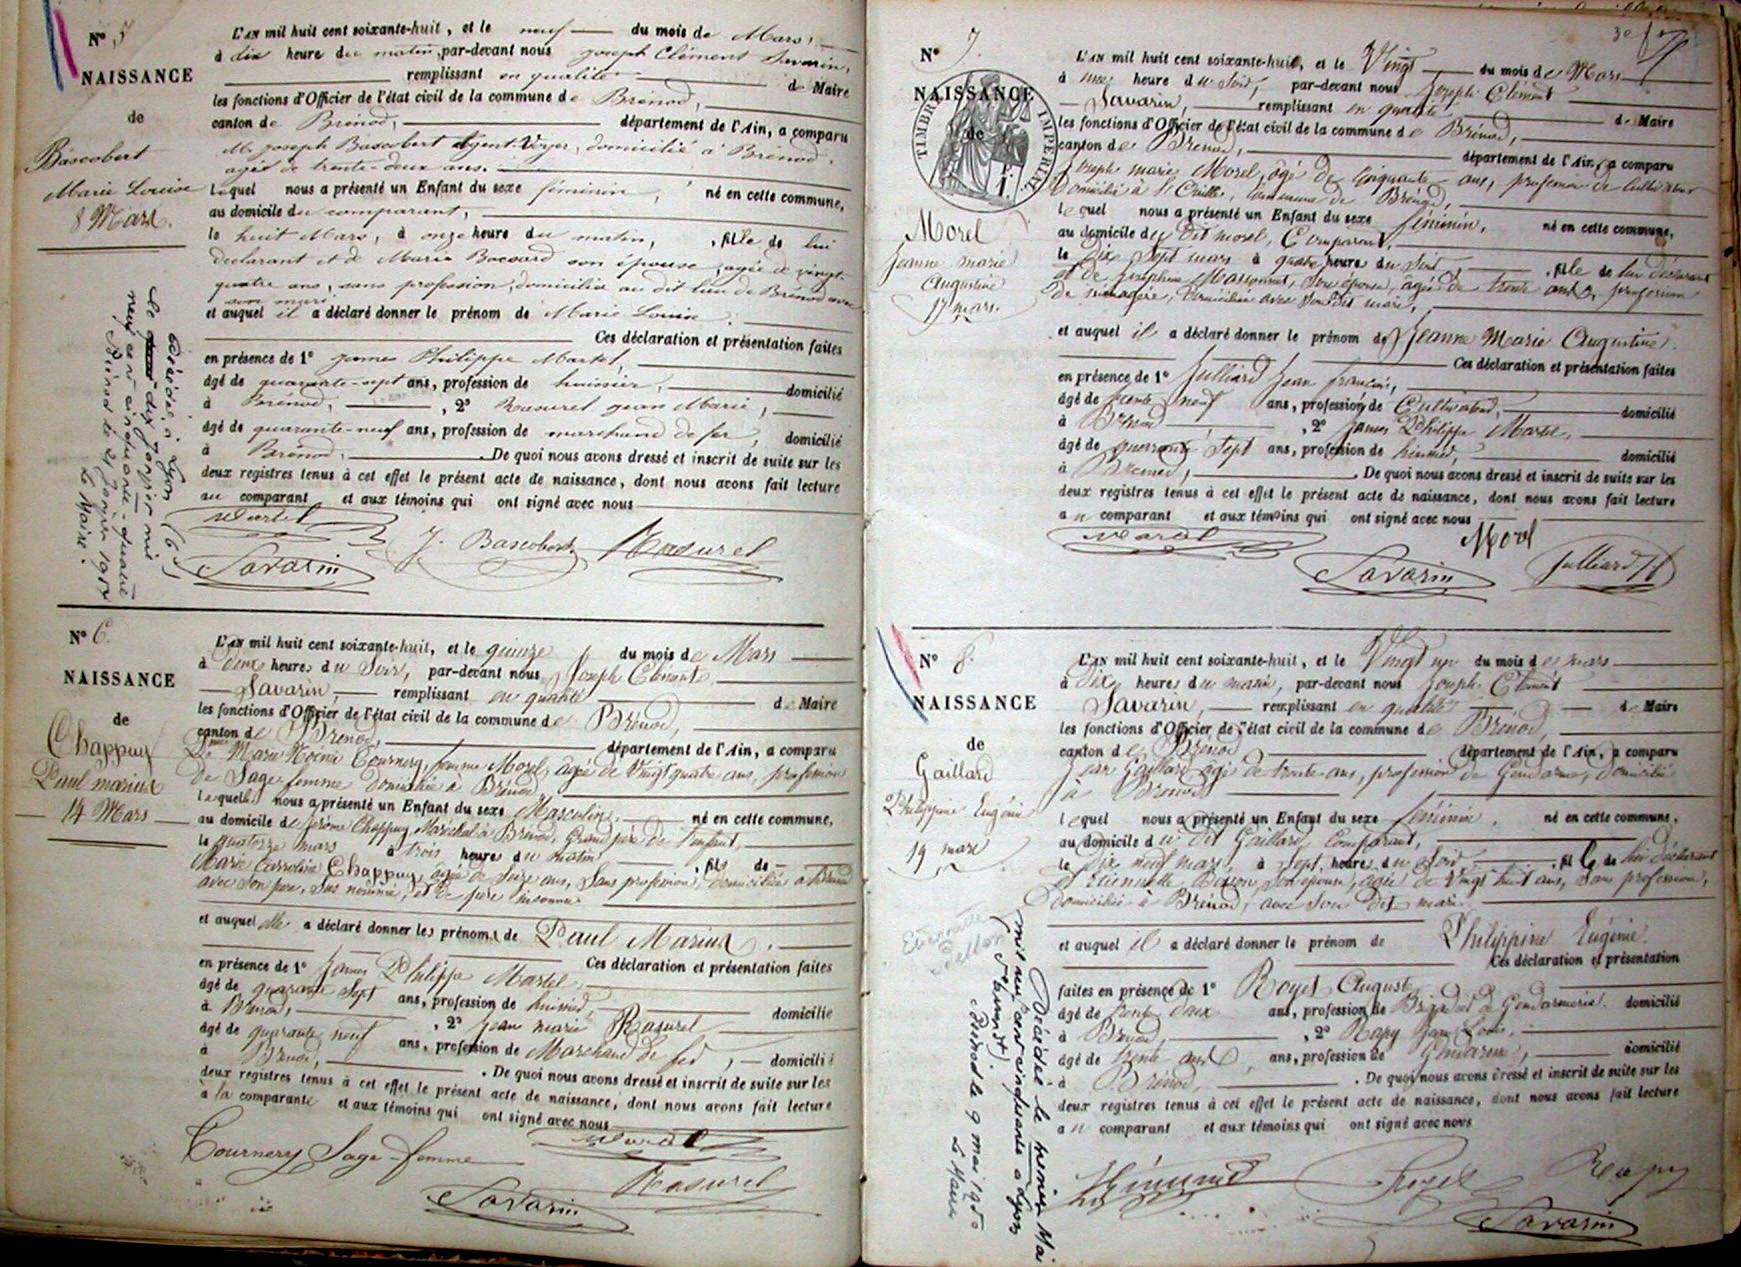 N° 5
NAISSANCE
de
Bascobert
Marie Louise
8 Mars.
L'AN mil huit cent soixante-huit, et le neuf du mois de Mars,
à dix heure du matin, par-devant nous Joseph Clément Savarin,
remplissant en qualité de Maire
les fonctions d'Officier de l'état civil de la commune de Brénod,
canton de Brénod, département de l'Ain, a comparu
M. Joseph Bascobert Agent-Voyer, domicilié à Brénod,
agé de trente-deux ans.
lequel nous a présenté un Enfant du sexe féminin, né en cette commune,
au domicile du comparant,
le huit Mars, à onze heure du matin, fille de lui
déclarant et de Marie son épouse, agée de vingt-
quatre ans, sans profession, domiciliée au dit lieu de Brénod avec
son mari
et auquel il a déclaré donner le prénom de Marie Louise.
Ces déclaration et présentation faites
en présence de 1° James Philippe Martel,
âgé de quarante-sept ans, profession de huissier, domicilié
à Brénod, , 2° Rasurel Jean Marie,
âgé de quarante-neuf ans, profession de marchand de fer, domicilié
à Brénod, . De quoi nous avons dressé et inscrit de suite sur les
deux registres tenus à cet effet le présent acte de naissance, dont nous avons fait lecture
au comparant et aux témoins qui ont signé avec nous
Martel
J. Bascobert
Rasurel
Savarin
Décédée à Lyon (6e)
le dix janvier mil
neuf cent cinquante-quatre
Brénod le 21 Janvier 1954
Le Maire.
N° 6.
NAISSANCE
de
Chappuy
Paul marius
14 Mars
L'AN mil huit cent soixante-huit, et le quinze du mois de Mars
à deux heures du Soir, par-devant nous Joseph Clément
Savarin, remplissant en qualité de Maire
les fonctions d'Officier de l'état civil de la commune de Brénod,
canton de Brénod, département de l'Ain, a comparu
Marie Tournery, femme Morel, âgée de Vingt quatre ans, profession
de Sage femme domiciliée à Brénod
laquelle nous a présenté un Enfant du sexe Masculin. né en cette commune,
au domicile de Jérôme Chappuy, Maréchal à Brénod, Grand père de l'enfant,
le quatorze mars à trois heure du matin , fils de
Marie Caroline Chappuy, agée de Seize ans, Sans profession, domiciliée à Brénod
avec son père, sus nommé, et de père inconnu
et auquel elle a déclaré donner les prénoms de Paul Marius.
Ces déclaration et présentation faites
en présence de 1° James Philippe Martel,
âgé de quarante Sept ans, profession de huissier, domicilié
à Brénod, , 2° Jean marie Rasurel
âgé de quarante neuf ans, profession de Marchand de fer, domicilié
à Brénod, . De quoi nous avons dressé et inscrit de suite sur les
deux registres tenus à cet effet le présent acte de naissance, dont nous avons fait lecture
à la comparante et aux témoins qui ont signé avec nous
Martel
Tournery Sage-femme
Rasurel
Savarin
N° 7.
NAISSANCE
de
TIMBRE IMPÉRIAL
Morel
Jeanne marie
Augustine
17 mars.
L'AN mil huit cent soixante-huit, et le Vingt du mois de Mars
à heure du Soir, par-devant nous Joseph Clément
Savarin, remplissant en qualité de Maire
les fonctions d'Officier de l'état civil de la commune de Brénod,
canton de Brénod, département de l'Ain, a comparu
Joseph marie Morel, âgé de Cinquante ans, profession de Cultivateur
Domicilié à commune de Brénod,
lequel nous a présenté un Enfant du sexe féminin, né en cette commune,
au domicile du dit morel, Comparant,
le Dix Sept mars à quatre heure du Soir , fille de lui déclarant
et de Joséphine son épouse, âgée de trente ans, profession
de ménagère, domiciliée avec Son dit mari,
et auquel il a déclaré donner le prénom de Jeanne Marie Augustine.
Ces déclaration et présentation faites
en présence de 1° Julliard Jean françois,
âgé de trente neuf ans, profession de Cultivateur, domicilié
à Brénod , 2° James Philippe Martel,
âgé de quarante Sept ans, profession de huissier, domicilié
à Brénod, . De quoi nous avons dressé et inscrit de suite sur les
deux registres tenus à cet effet le présent acte de naissance, dont nous avons fait lecture
au comparant et aux témoins qui ont signé avec nous
Martel
Morel
Savarin
Julliard
N° 8.
NAISSANCE
de
Gaillard
Philippine Eugénie
19 mars
L'AN mil huit cent soixante-huit, et le Vingt un du mois de mars
à Dix heures du matin, par-devant nous Joseph Clément
Savarin, remplissant en qualité de Maire
les fonctions d'Officier de l'état civil de la commune de Brénod,
canton de Brénod département de l'Ain, a comparu
Jean Gaillard agé de trente-ans, profession de Gendarme, domicilié
à Brénod
lequel nous a présenté un Enfant du sexe féminin. né en cette commune,
au domicile du dit Gaillard, Comparant,
le Dix neuf mars, à Sept heure du Soir , fille de lui déclarant
Etiennette son épouse, agée de Vingt huit ans, Sans profession,
Domiciliée à Brénod, avec son dit mari.
et auquel il a déclaré donner le prénom de Philippine Eugénie.
Ces déclaration et présentation
faites en présence de 1° Royet Auguste
âgé de trente deux ans, profession de Brigadier de Gendarmerie. domicilié
à Brénod, , 2° Rapy Jean Louis,
âgé de trente ans, ans, profession de Gendarme, domicilié
à Brénod, . De quoi nous avons dressé et inscrit de suite sur les
deux registres tenus à cet effet le présent acte de naissance, dont nous avons fait lecture
au comparant et aux témoins qui ont signé avec nous
Royet
Rapy
Savarin
Etiennette
Décédée le premier Mai
mil neuf cent cinquante à Lyon
Brénod le 9 mai 1950
Le Maire